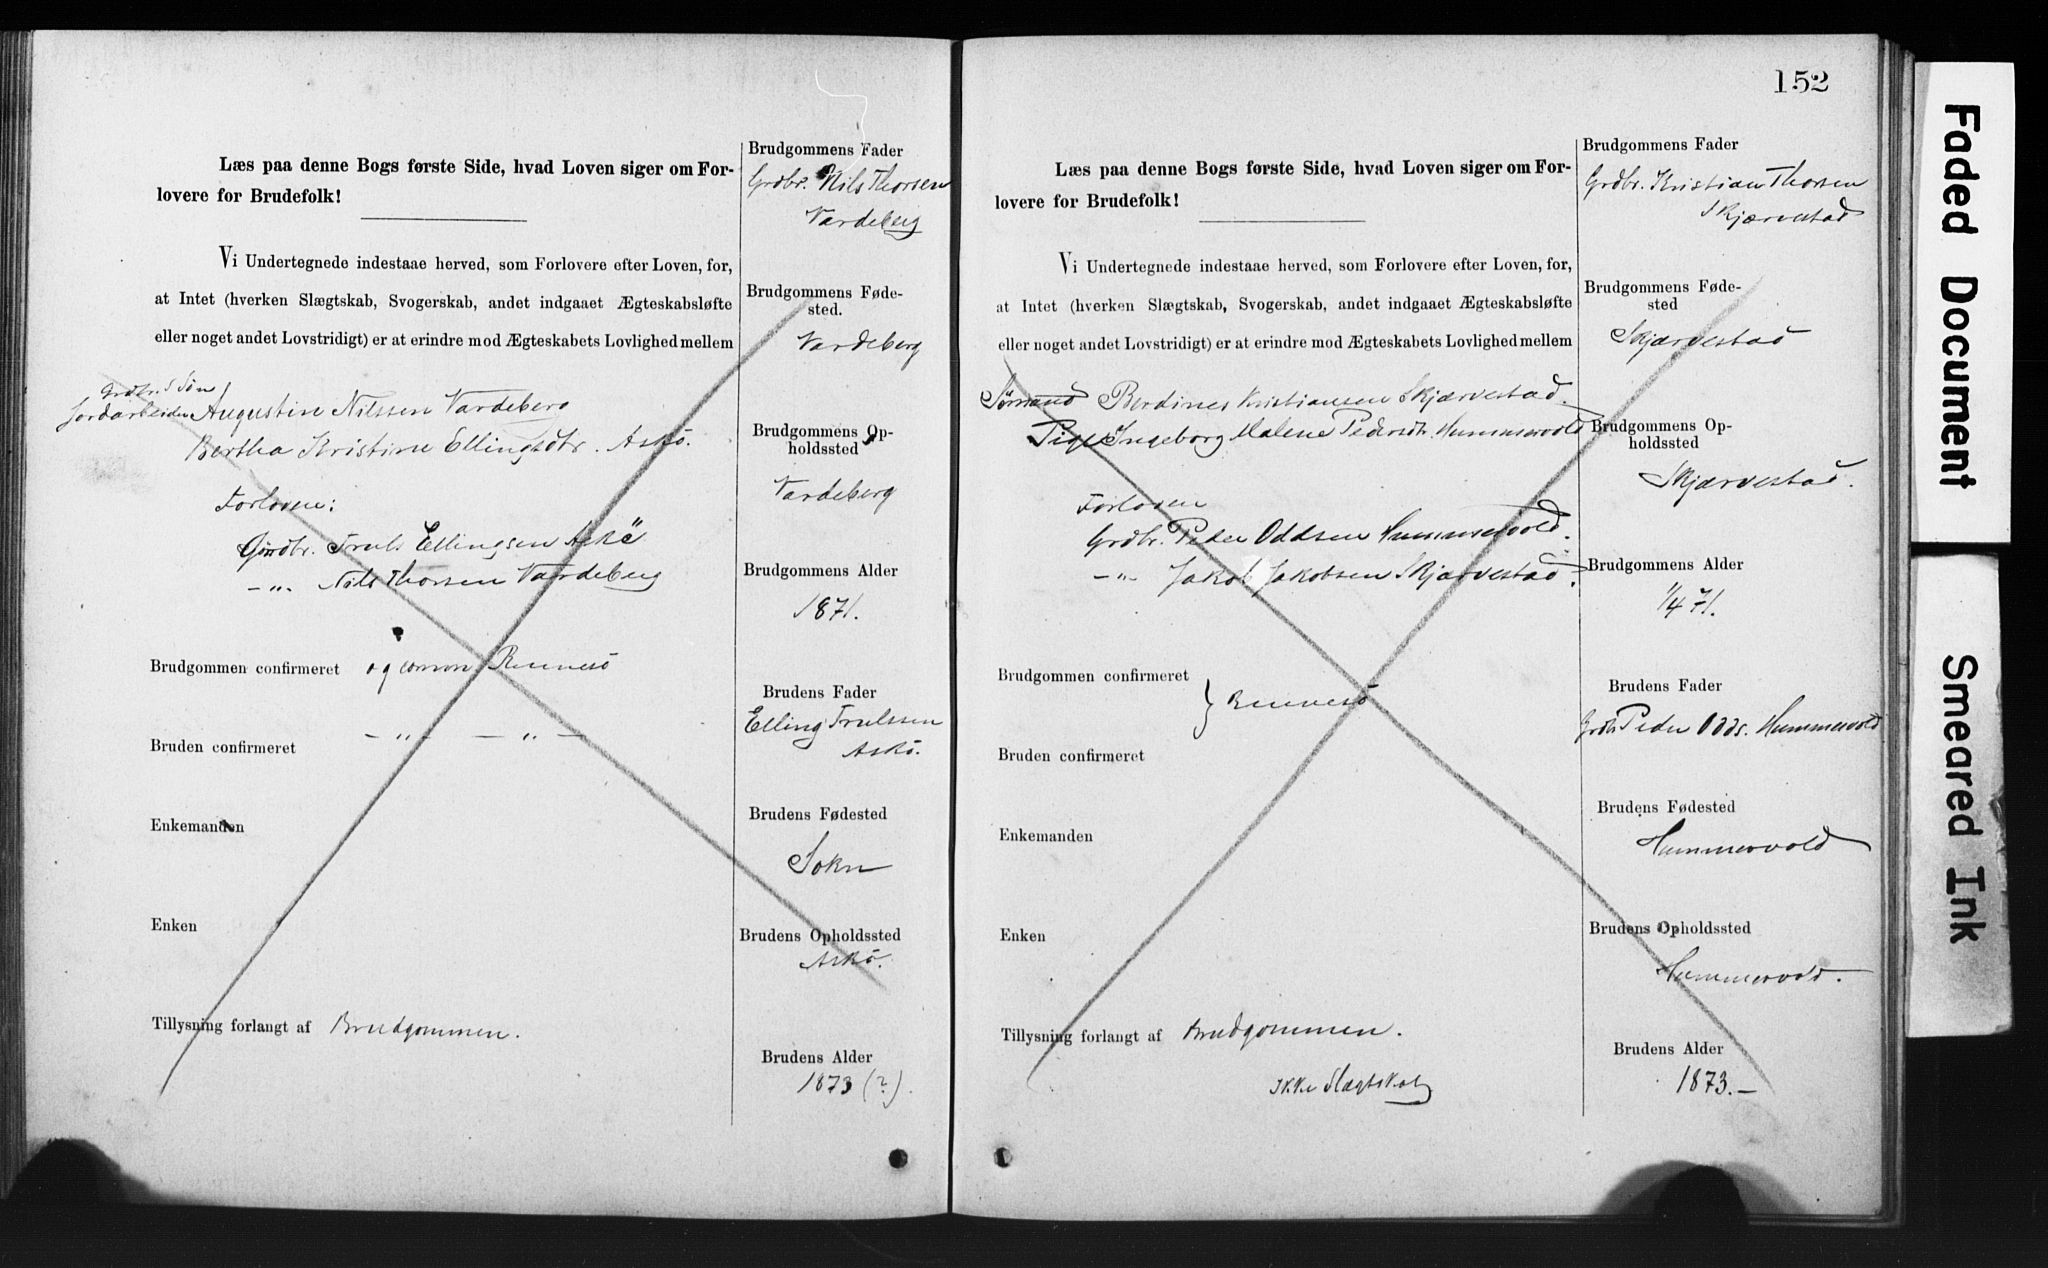 Læs paa denne Bogs første Side, hvad Loven siger om For-
lovere for Brudefolk!
Vi Undertegnede indestaae herved, som Forlovere efter Loven, for,
at Intet (hverken Slægtskab, Svogerskab, andet indgaaet Ægteskabsløfte
eller noget andet Lovstridigt) er at erindre mod Ægteskabets Lovlighed mellem
Grdbr. s Søn
Jordarbeider Augustin Nilssen Vardeberg
Bertha Kristine Ellingsdtr. Askø.
Forlovere:
Grdbr. Truls Ellingsen Askö
-"- Nils Thorsen Vardeberg
Brudgommen confirmeret og Rennesø
Bruden confirmeret -"- -"-
Enkemanden
Enken
Tillysning forlangt af Brudgommen.
Brudgommens Fader
Grdbr. Nils Thorsen
Vardeberg
Brudgommens Føde-
sted.
Vardeberg
Brudgommens Op-
holdssted
Vardeberg
Brudgommens Alder
1871.
Brudens Fader
Elling Trulssen
Askø.
Brudens Fødested
Sokn
Brudens Opholdssted
Askø.
Brudens Alder
1873 (?).
152
Læs paa denne Bogs første Side, hvad Loven siger om For-
lovere for Brudefolk!
Vi Undertegnede indestaae herved, som Forlovere efter Loven, for,
at Intet (hverken Slægtskab, Svogerskab, andet indgaaet Ægteskabsløfte
eller noget andet Lovstridigt) er at erindre mod Ægteskabets Lovlighed mellem
Sømand Berdines Kristiansen Skjærvestad.
Pige Ingeborg Malene Pedersdt. Hummervold
Forlovere
Grdbr. Peder Oddsen Hummervold.
-"- Jakob Jakobsen Skjærvestad.
Brudgommen confirmeret
} Rennesø
Bruden confirmeret
Enkemanden
Enken
Tillysning forlangt af Brudgommen.
Ikke Slægtskab
Brudgommens Fader
Grdbr. Kristian Thorsen
Skjærvestad
Brudgommens Føde-
sted
Skjærvestad
Brudgommens Op-
holdssted
Skjærvestad.
Brudgommens Alder
1/4 71.
Brudens Fader
Grdb. Peder Odds. Hummervold
Brudens Fødested
Hummervold
Brudens Opholdssted
Hummervold.
Brudens Alder
1873.-
Faded Document
Smeared Ink